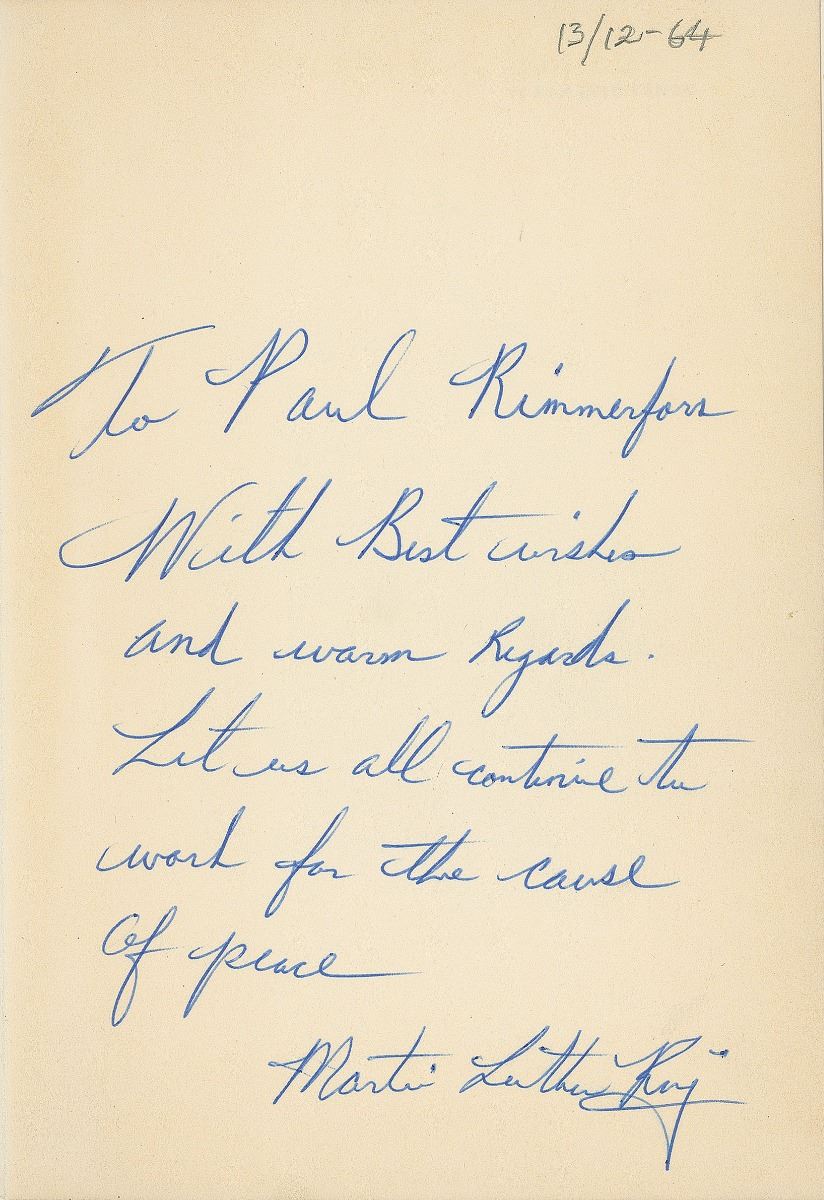 13/12-64
To Paul Rimmerfors
With Best wishes
and warm Regards.
Let us all continue to
work for the cause
Of peace
Martin Luther King